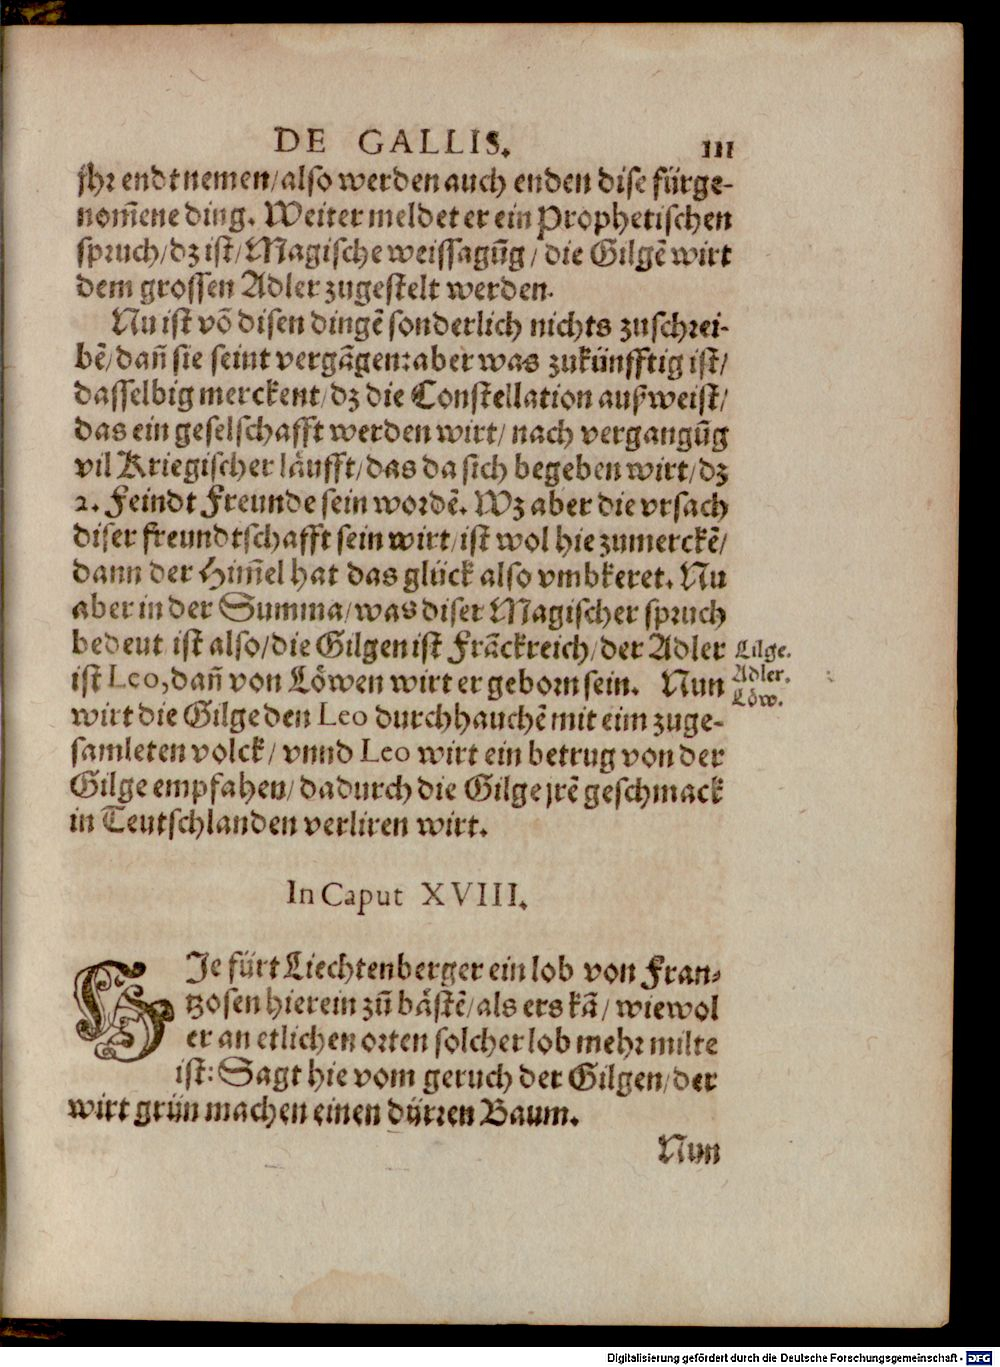 DE GALLIS. 111
jhr endt nemen/ also werden auch enden dise fürge-
nom̃ene ding. Weiter meldet er ein Prophetischen
spruch/ dz ist/ Magische weissagũg/ die Gilgẽ wirt
dem grossen Adler zugestelt werden.
Nu ist võ disen dingẽ sonderlich nichts zuschrei-
bẽ/ dañ sie seint vergãgen: aber was zukünfftig ist/
dasselbig merckent/ dz die Constellation außweist/
das ein geselschafft werden wirt/ nach vergangũg
vil Kriegischer läufft/ das da sich begeben wirt/ dz
2. Feindt Freunde sein wordẽ. Wz aber die vrsach
diser freundtschafft sein wirt/ ist wol hie zumerckẽ/
dann der Him̃el hat das glück also vmbkeret. Nu
aber in der Summa/ was diser Magischer spruch
bedeut ist also/ die Gilgen ist Frãckreich/ der Adler
ist Leo, dañ von Löwen wirt er geborn sein. Nun
wirt die Gilge den Leo durchhauchẽ mit eim zuge-
samleten volck/ vnnd Leo wirt ein betrug von der
Gilge empfahen/ dadurch die Gilge jrẽ geschmack
in Teutschlanden verliren wirt.
Lilge.
Adler.
Löw.
In Caput XVIII.
HIe fürt Liechtenberger ein lob von Fran-
tzosen hierein zũ bästẽ/ als ers kã/ wiewol
er an etlichen orten solcher lob mehr milte
ist: Sagt hie vom geruch der Gilgen/ der
wirt grün machen einen dürren Baum.
Nun
Digitalisierung gefördert durch die Deutsche Forschungsgemeinschaft - DFG